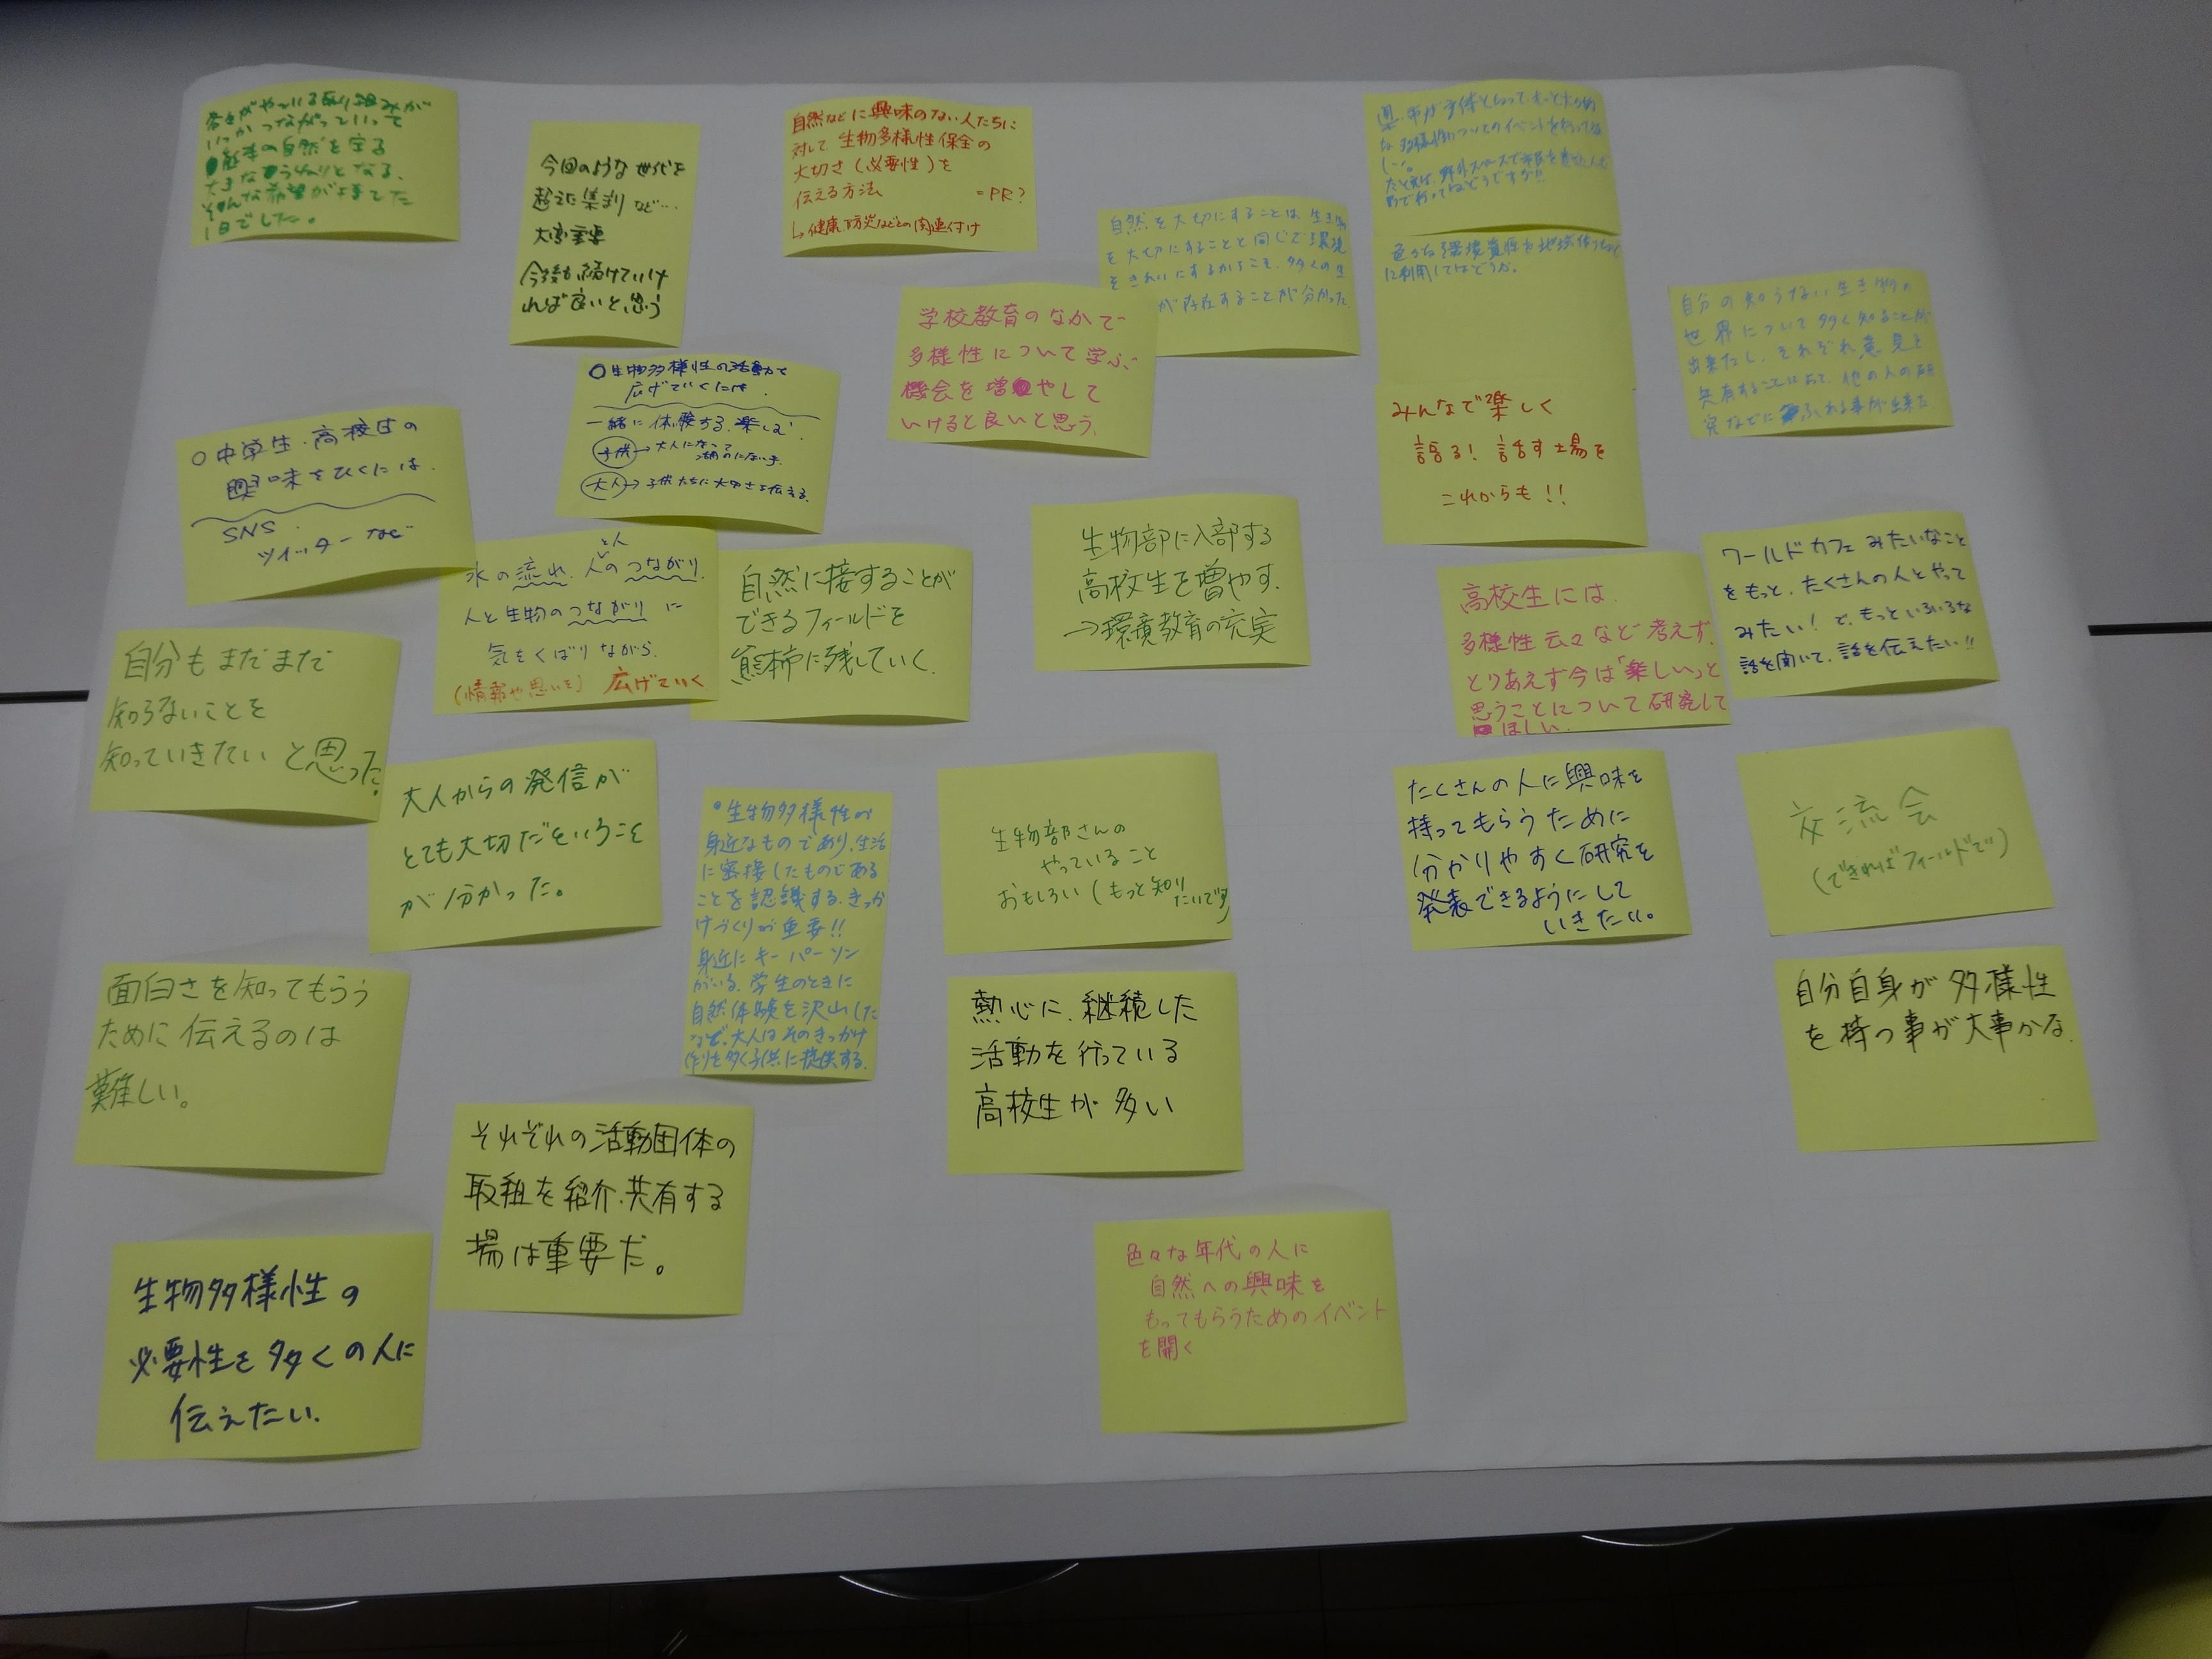 各々がやっている取り組みが
いつかつながっていって
熊本の自然を守る
大きなうねりとなる、
そんな希望がもてた
1日でした。
今回のような世代を
超えた集まりなど…
大変重要
今後も続けていけ
れば良いと思う
自然などに興味のない人たちに
対して、生物多様性保全の
大切さ（必要性）を
伝える方法 =PR?
↳健康、防災などとの関連付け
自然を大切にすることは、生き物
を大切にすることと同じで環境
をきれいにするからこそ、多くの生
が存在することが分かった
県・市が主体となって、もっと大々的
な多様性についてのイベントを行ってほ
しい。
たとえば、野外スペースで市民を
行ってはどうですか!!
色々な環境資源を地域
に利用してはどうか。
みんなで楽しく
語る! 話す場を
これからも!!
学校教育のなかで
多様性について学ぶ
機会を増やして
いけると良いと思う。
自分の知らない生き物の
世界について多く知ることが
出来たし、それぞれ意見を
共有することによって、他の人の研
究などにふれる事が出来た
○生物多様性の活動を
広げていくには.
一緒に体験する.楽しむ.
子供→大人になって
活動のにない手.
大人→子供たちに大切さを伝える.
○中学生.高校生の
興味をひくには.
SNS.
ツイッターなど
と人
水の流れ、人のつながり、
人と生物のつながりに
気をくばりながら、
(情報や思いを) 広げていく
自然に接することが
できるフィールドを
熊本市に残していく.
生物部に入部する
高校生を増やす.
→環境教育の充実
高校生には、
多様性云々など考えず、
とりあえず今は「楽しい」と
思うことについて研究して
ほしい.
ワールドカフェみたいなこと
をもっと、たくさんの人とやって
みたい! で、もっといろいろな
話を聞いて、話を伝えたい!!
自分もまだまだ
知らないことを
知っていきたいと思った。
大人からの発信が
とても大切だということ
が分かった。
•生物多様性が
身近なものであり、生活
に密接したものである
ことを認識する、きっか
けづくりが重要!!
身近にキーパーソン
がいる、学生のときに
自然体験を沢山した
など。大人はそのきっかけ
作りを多く子供に提供する.
生物部さんの
やっていること
おもしろい(もっと知り
たいです)
たくさんの人に興味を
持ってもらうために
分かりやすく研究を
発表できるようにして
いきたい。
交流会
(できればフィールドで)
面白さを知ってもらう
ために伝えるのは
難しい。
熱心に、継続した
活動を行っている
高校生が多い
自分自身が多様性
を持つ事が大事かな.
それぞれの活動団体の
取組を紹介.共有する
場は重要だ。
生物多様性の
必要性を多くの人に
伝えたい.
色々な年代の人に
自然への興味を
もってもらうためのイベント
を開く